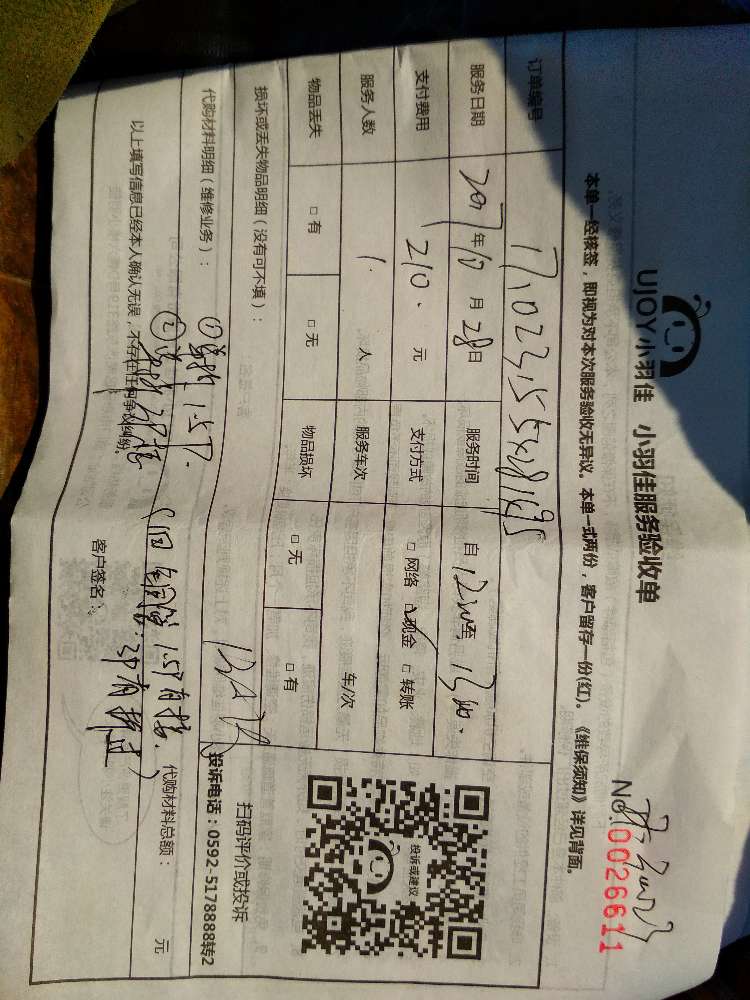 UJOY小羽佳 小羽佳服务验收单
No.0026611
本单一经核签，即视为对本次服务验收无异议。本单一式两份，客户留存一份(红)。《维保须知》详见背面。
订单编号
服务日期 2017年10月28日 服务时间 自 至
支付费用 210. 元 支付方式 □ 网络 □ 现金 □ 转账
服务人数 1 人 服务车次 车/次
物品丢失 □ 有 □ 无 物品损坏 □ 无 □ 有
损坏或丢失物品明细（没有可不填）：
代购材料明细（维修业务）：
① 1.5P.
②
1.5P有
3P有
代购材料总额： 元
以上填写信息已经本人确认无误，不存在任何争议纠纷。
客户签名：
投诉或建议
扫码评价或投诉
投诉电话：0592-5178888转2